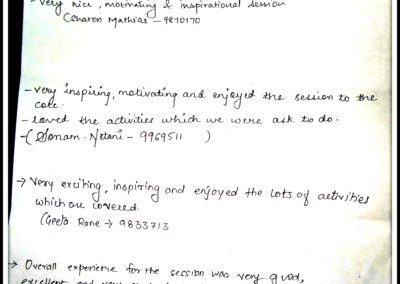 - Very nice, motivating & inspirational session
(Sharon Mathias - 9870170
- very inspiring, motivating and enjoyed the session to the
core.
- Loved the activities which we were ask to do.
-( Sonam. Netani - 9969511 )
→ Very exciting, inspiring and enjoyed the lots of activities
which are covered.
(Geeta Rane → 9833713
→ Overall experience for the session was very good,
excellent and